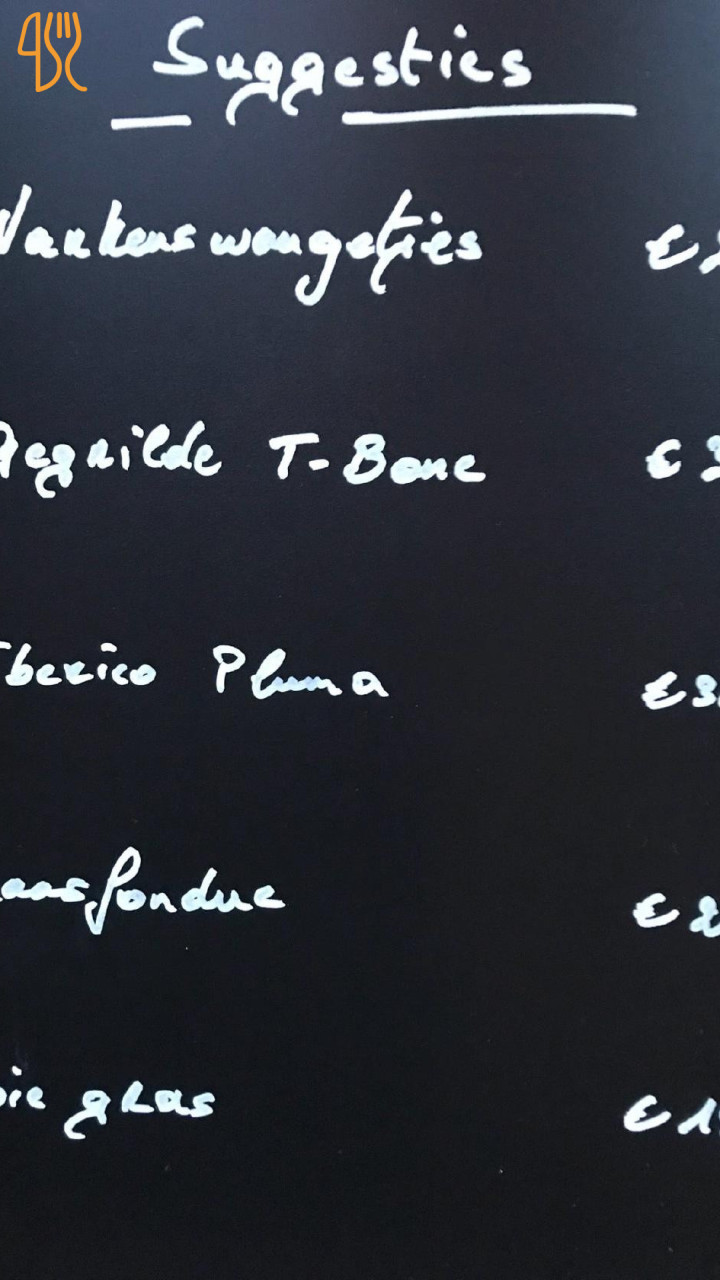 Suggesties
Varkenswangetjes €
Gegrilde T-Bone € 3
Iberico Pluma € 3
aasfondue € 2
oie gras € 1